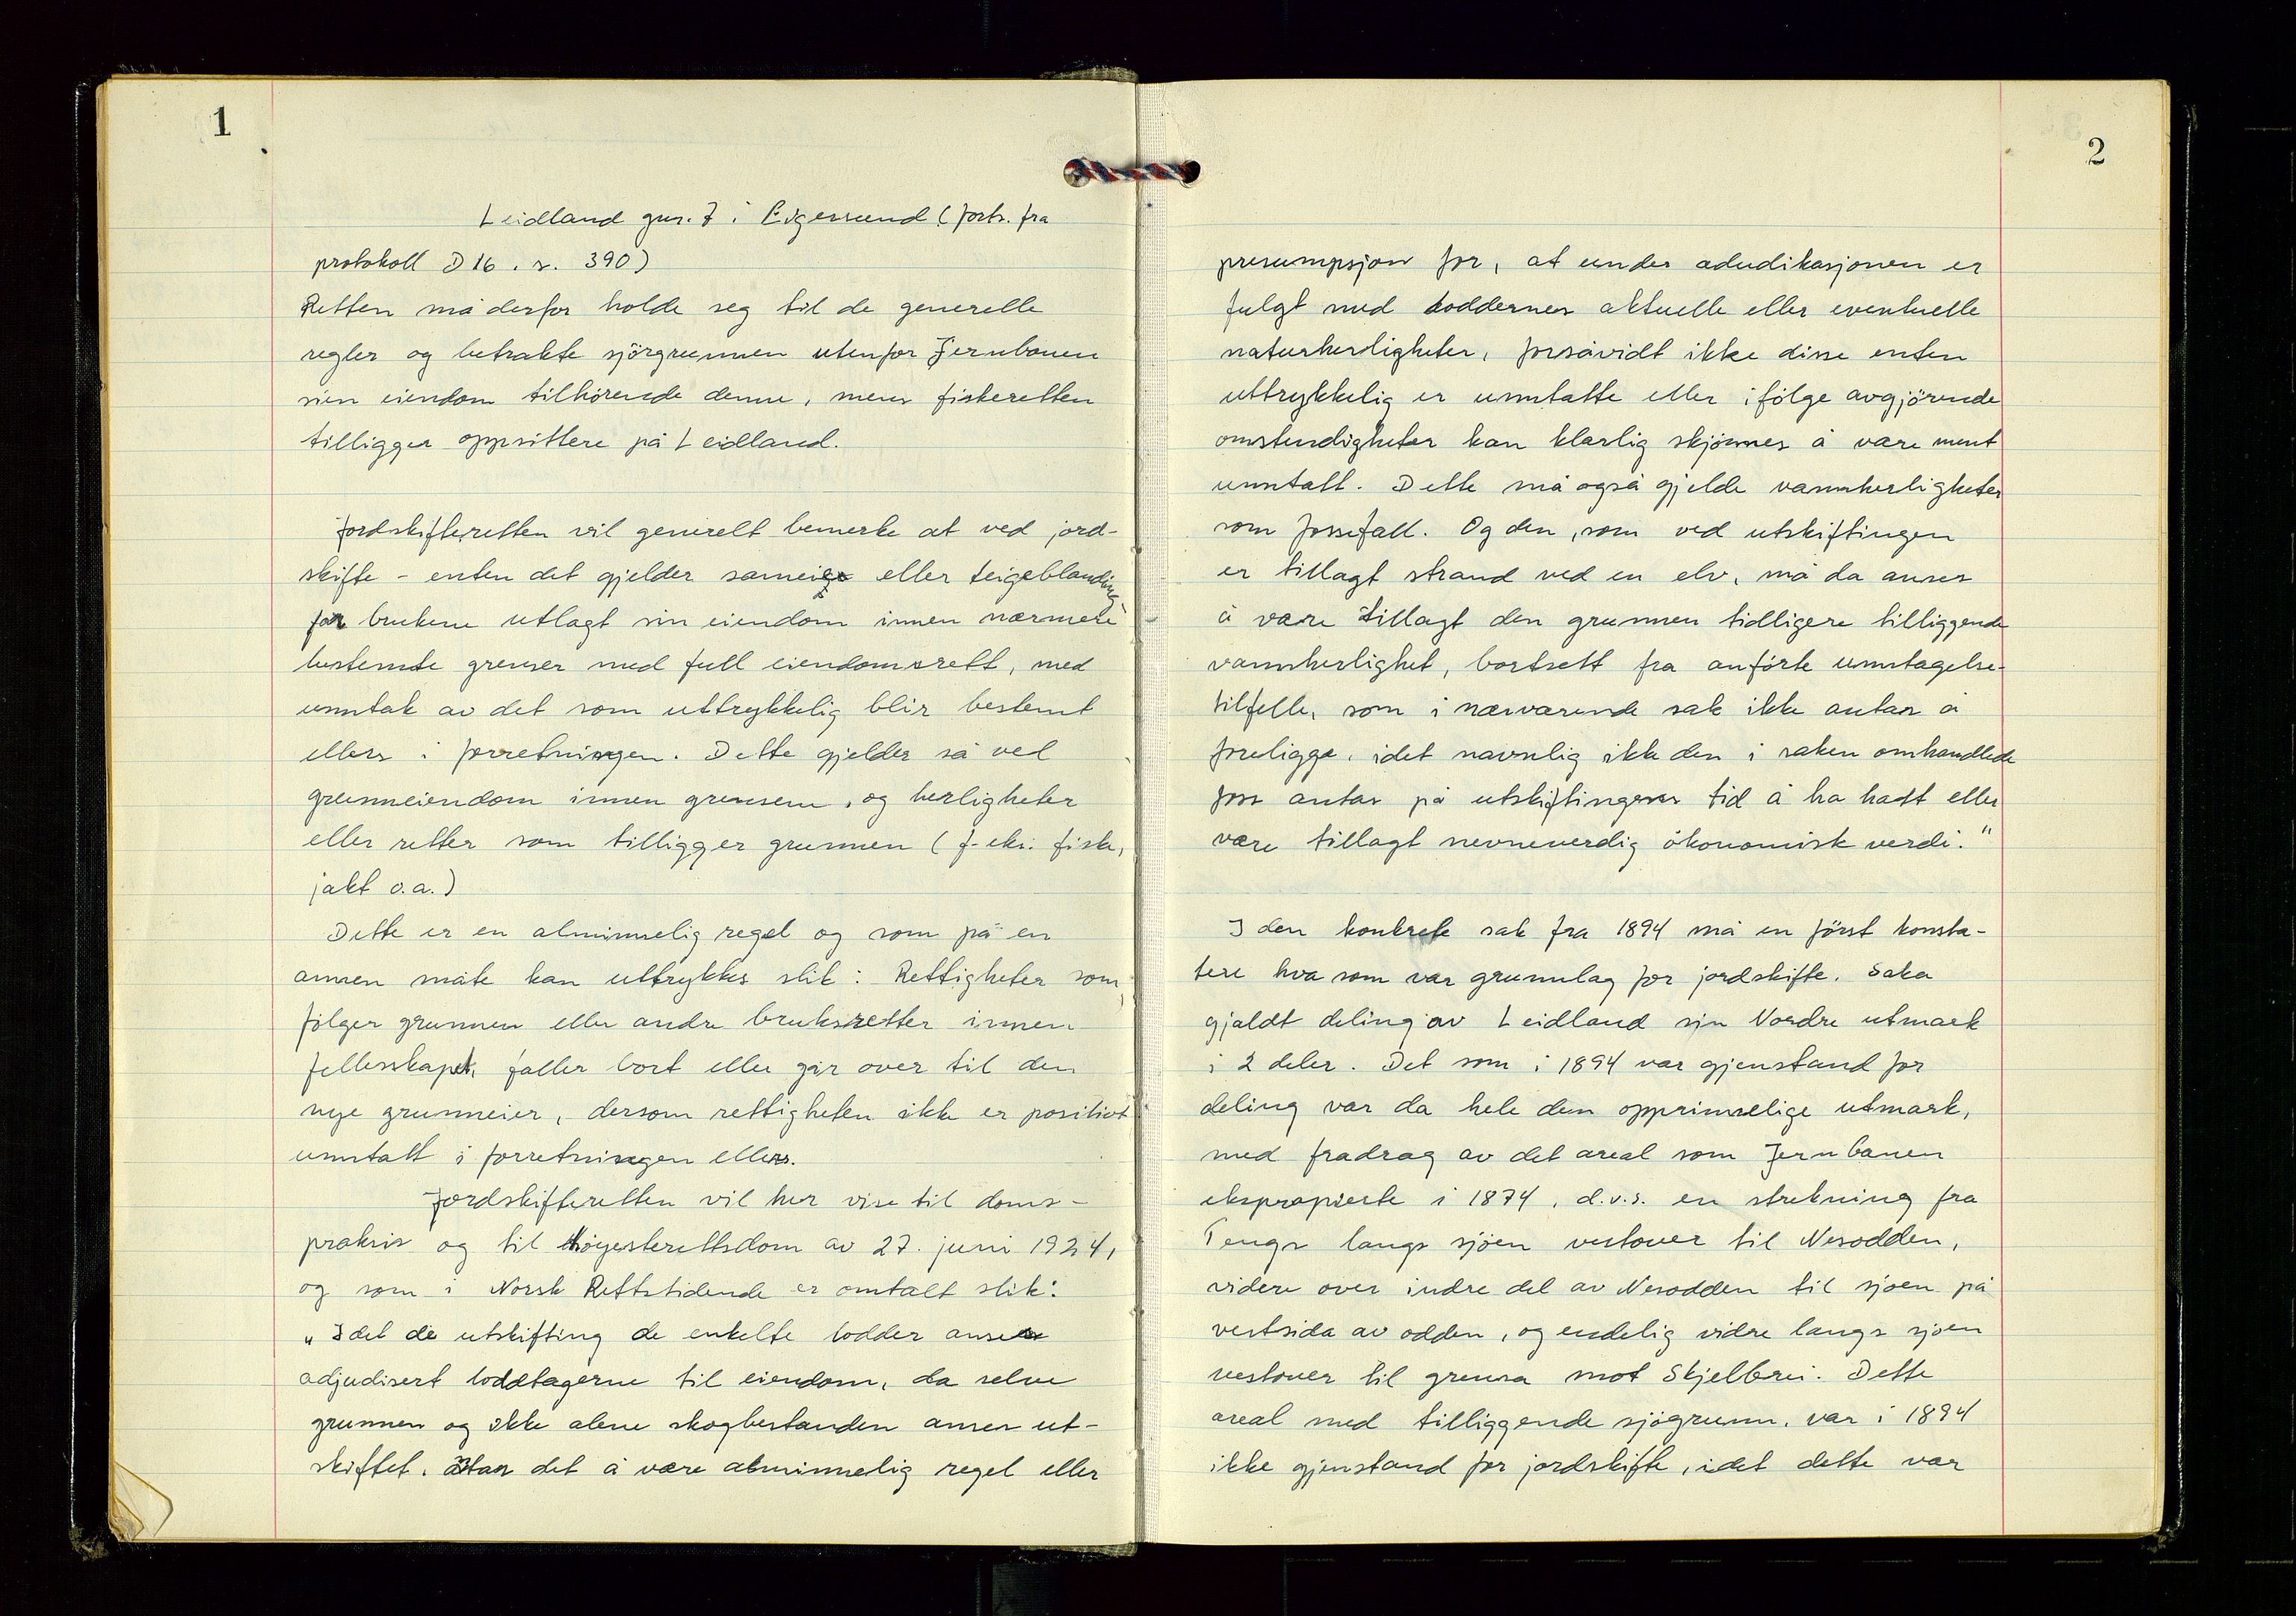 1
Leidland gnr. 7 i Eigersund (forts. fra
protokoll D 16. s. 390)
Retten må derfor holde seg til de generelle
regler og betrakte sjørgrunnen utenfor Jernbanen
sien eiendom tilhørende denne, mens fiskeretten
tilligger oppsittere på Leidland.
Jordskifteretten vil generelt bemerke at ved jord-
skifte - enten det gjelder sameige eller teigeblanding
får brukene utlagt sin eiendom innen nærmere
bestemte grenser med full eiendomsrett, med
unntak av det som uttrykkelig blir bestemt
ellers i forretningen. Dette gjelder så vel
grunneiendom innen grensene, og herligheter
eller retter som tilligger grunnen (f. eks. fiske,
jakt o.a.)
Dette er en alminnelig regel og som på en
annen måte kan uttrykkes slik: Rettigheter som
følger grunnen eller andre bruksretter innen
fellesskapet, faller bort eller går over til den
nye grunneier, dersom rettigheten ikke er positivt
unntatt i forretningen ellers.
Jordskifteretten vil her vise til doms-
praksis og til Høyesterettsdom av 27. juni 1924,
og som i Norsk Rettstidende er omtalt slik:
„Idet de utskifting de enkelte lodder anses
adjudisert loddtagerne til eiendom, da selve
grunnen og ikke alene skogbestanden anses ut-
skiftet. Antar det å være alminnelig regel eller
2
presumpsjon for, at under adudikasjonen er
fulgt med loddernes aktuelle eller eventuelle
naturherligheter, forsåvidt ikke disse enten
uttrykkelig er unntatte eller ifølge avgjørende
omstendigheter kan klarlig skjønnes å være ment
unntatt. Dette må også gjelde vannherligheter
som fossefall. Og den, som ved utskiftingen
er tillagt strand ved en elv, må da anses
å være tillagt den grunnen tidligere tilliggende
vannherlighet, bortsett fra anførte unntagelse-
tilfelle, som i nærværende sak ikke antas å
foreligge, idet navnlig ikke den i saken omhandlede
foss antas på utskiftingens tid å ha hadt eller
være tillagt nevneverdig økonomisk verdi."
I den konkrete sak fra 1894 må en først konsta-
tere hva som var grunnlag for jordskifte. Saka
gjaldt deling av Leidland sin Nordre utmark
i 2 deler. Det som i 1894 var gjenstand for
deling var da hele den opprinnelige utmark,
med fradrag av det areal som Jernbanen
ekspropierte i 1874, d.v.s. en strekning fra
Tengs langs sjøen vestover til Nesodden,
videre over indre del av Nesodden til sjøen på
vestsida av odden, og endelig vidre langs sjøen
vestover til grensa mot Skjelbrei. Dette
areal med tilliggende sjøgrunn, var i 1894
ikke gjenstand for jordskifte, idet dette var